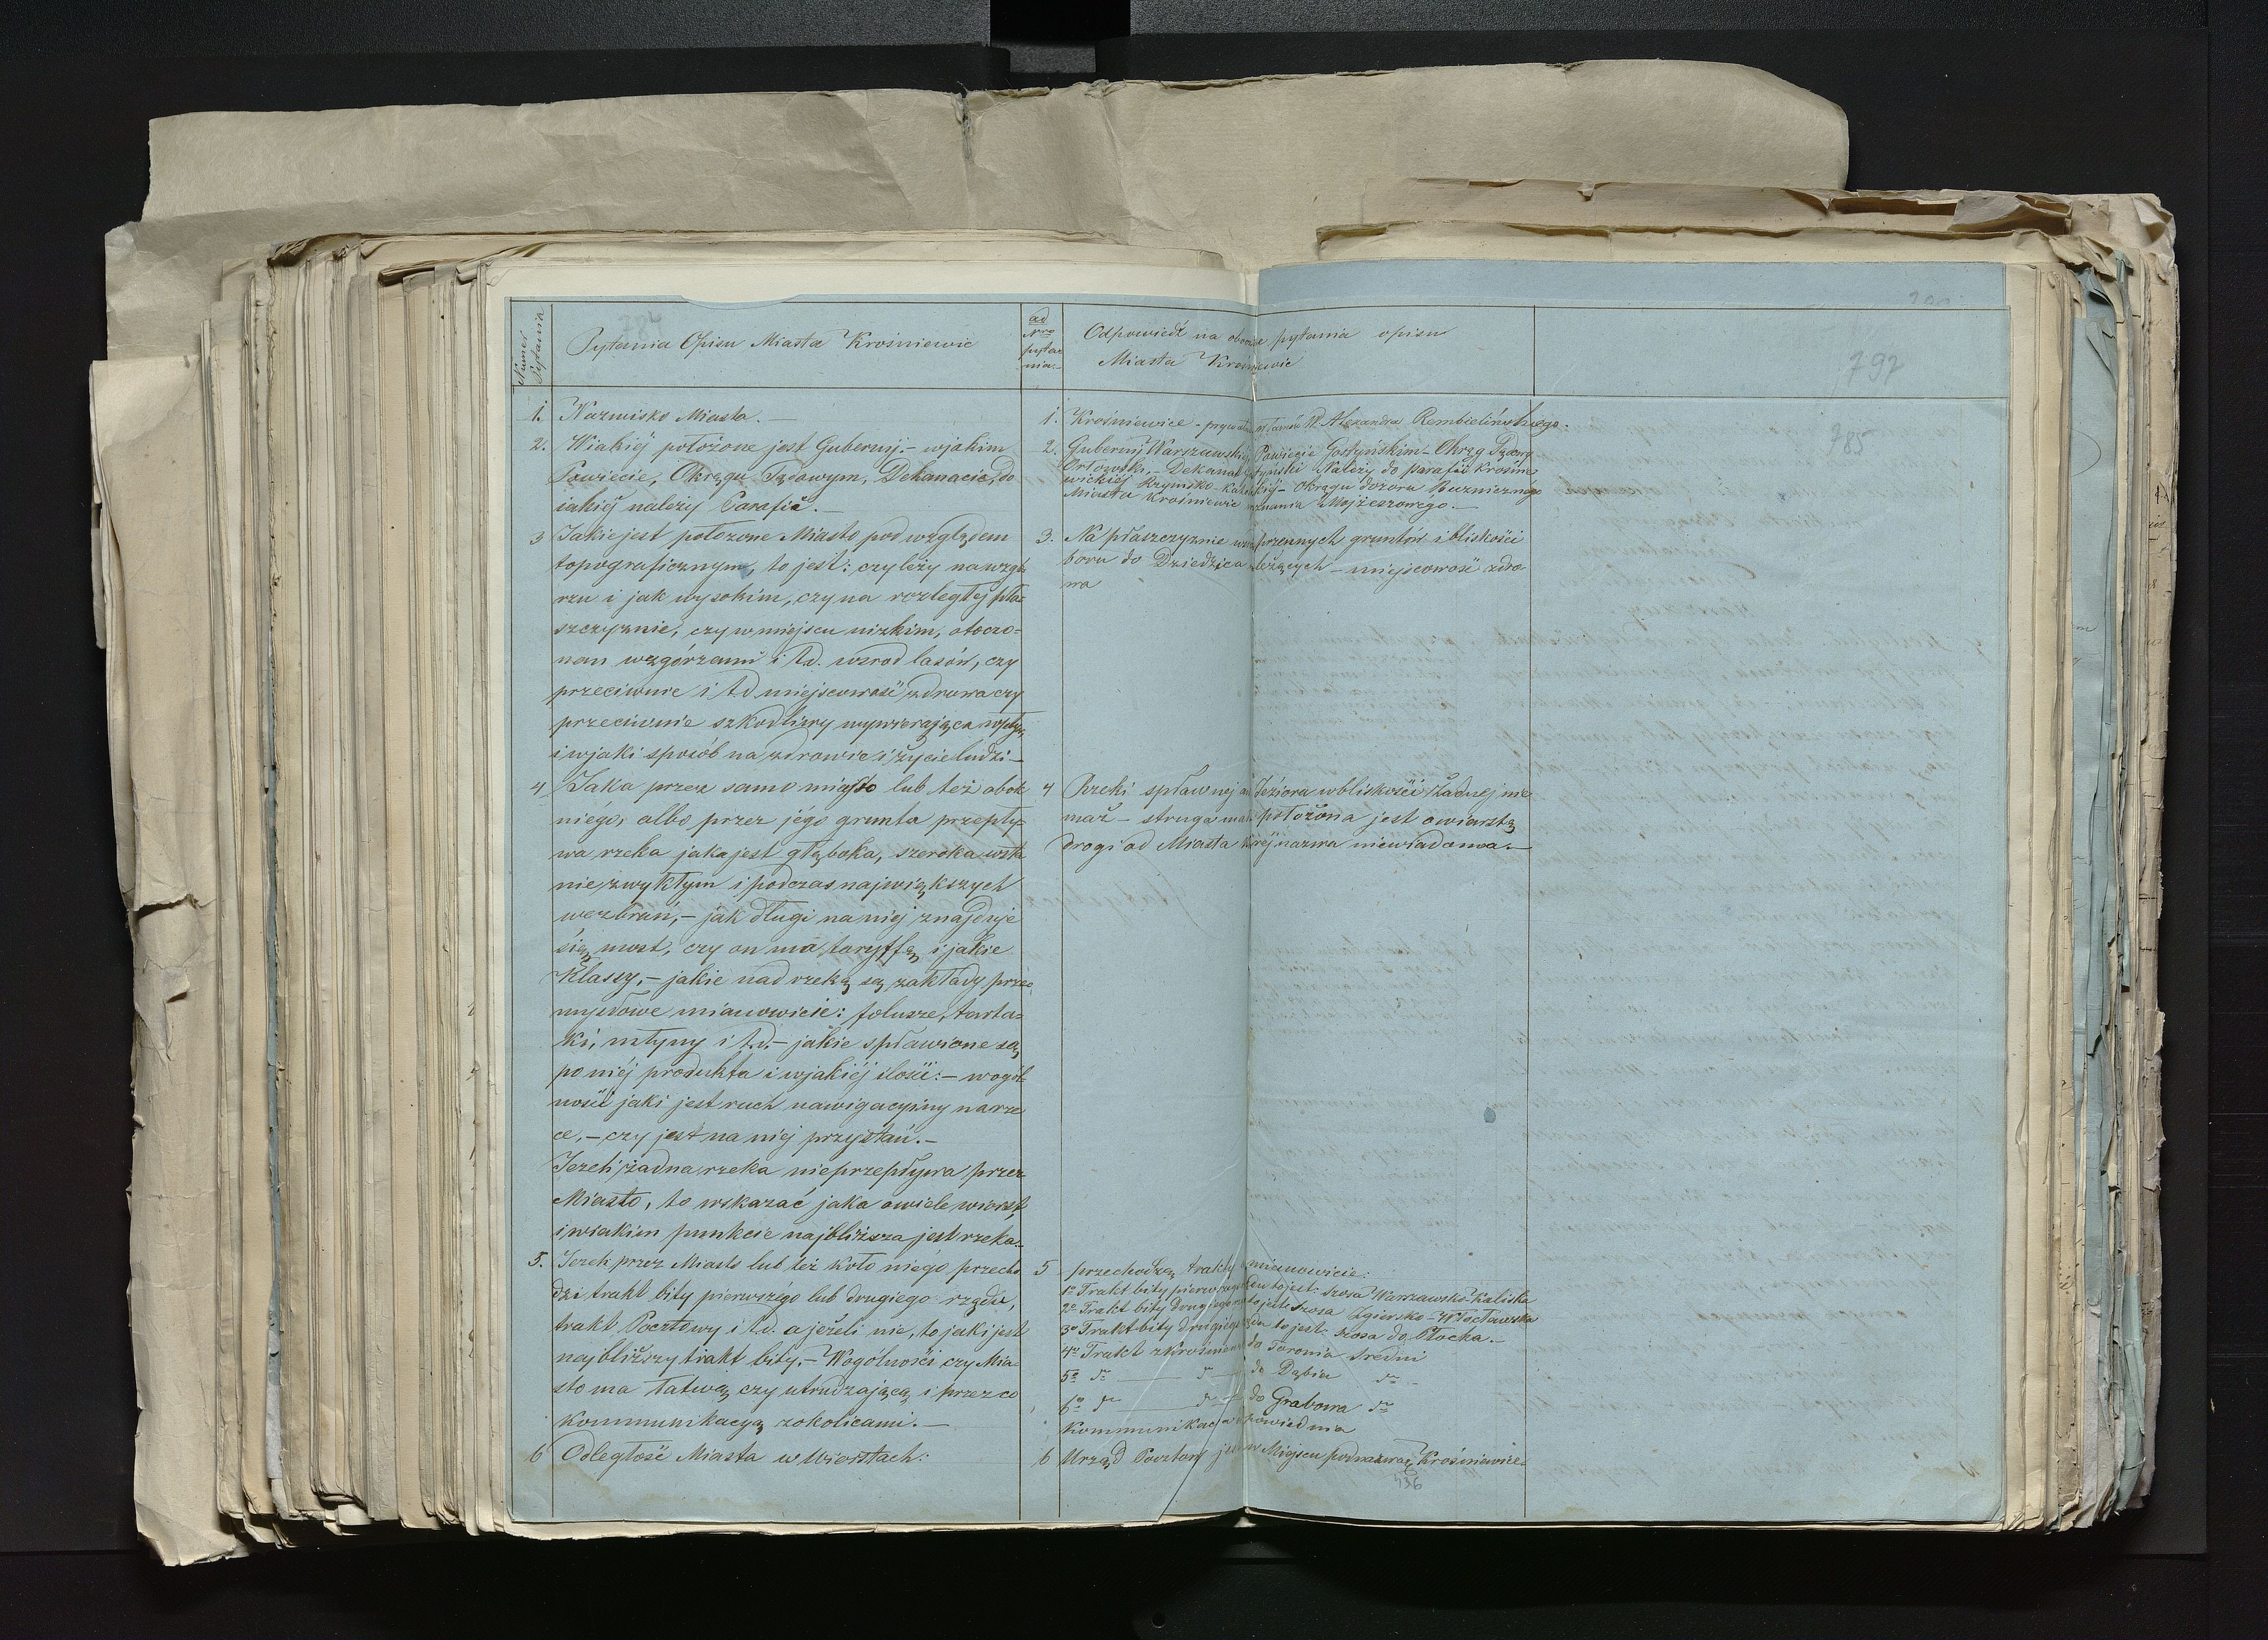 Numer Pytania
784
Pytania Opisu Miasta Krośniewic
ad Nro pytania
Odpowiedź na oboczne pytania opisu
Miasta Krośniewic
797
785
1. Nazwisko Miasta.—
2. Wiakiéj położone jest Gubernij.— wjakim
Powiecie, Okręgu Sądowym, Dekanacie, do
iakiéj należy Parafii.—
3 Jakie jest położone Miasto pod względem
topograficznym, to jest: czy leży na wzgó-
rzu i jak wysokim, czy na rozległej pła-
szczyznie, czy w miejscu nizkim, otoczo-
nem wzgórzami i t.d. wsrod lasów, czy
przeciwnie i t.d miejscowość zdrowa czy
przeciwnie szkodliwy wywierająca wpływ,
i wjaki sposób na zdrowie i życie ludzi—
4 Jaka przez samo miasto lub też obok
niégo, albo przez jégo grunta przepły-
wa rzeka jaka jest głęboka, szeroka wsta
nie zwykłym i podczas największych
wezbrań,— jak długi na niej znajduje
się most, czy on ma taryffę i jakie
Klassy,— jakie nad rzeką są zakłady prze-
mysłowe mianowicie: folusze, tarta-
ki, młyny i t.d.— jakie spławione są
po niéj produkta i wjakiéj ilości:— wogól-
ności jaki jest ruch nawigacyiny na rze
ce,— czy jest na niej przystań.—
Jezeli żadna rzeka nieprzepływa przez
Miasto, to wskazać jaka owiele wiorst
i wiakim punkcie najbliższa jest rzeka.
5. Jezeli przez Miasto lub też koło niégo przecho
dzi trakt bity pierwszégo lub drugiego rzędu,
trakt Pocztowy i t.d. a jeżeli nie, to jaki jest
najbliższy trakt bity.— Wogólności czy Mia-
sto ma łatwą czy utrudzającą i przez co
kommunikacyą zokolicami.—
6 Odległość Miasta w Wiorstach:
1. Krośniewice - prywatne własność W. Alexandra Rembielińskiego.
2. Gubernij Warszawskiej Powiecie Gostyńskim - Okręg Sądowy
Orłowski.— Dekanat Należy do parafii Krośnie
wickiéj Rzymsko-Katolickiéj — Okręgu dozoru Bużnicznégo
Miasta Krośniewic wyznania Mojżeszowégo.—
3. Na płaszczyznie wśród pszennych gruntów i bliskości
boru do Dziedzica należących — miejscowość zdro-
wa
4 Rzeki spławnej ani Jeziora w bliskości żadnej nie
masz — struga mała położona jest o wiorstę
drogi od Miasta któréj nazwa niewiadoma.—
5 przechodzą trakty mianowicie:
1o Trakt bity pierwszego rzędu to jest: szosa Warszawsko-Kaliska
2o Trakt bity Drugiego rzędu to jest: szosa Zgiersko-Włocławska
3o Trakt bity drugiégo rzędu to jest: szosa do Płocka.—
4o Trakt zKrośniewic do Torunia średni
5o do —— do do Dąbia do
6o do —— do do Grabowa do
Kommunikacja odpowiednia
6 Urząd Pocztowy jest w Miejscu pod nazwą Krośniewice
436